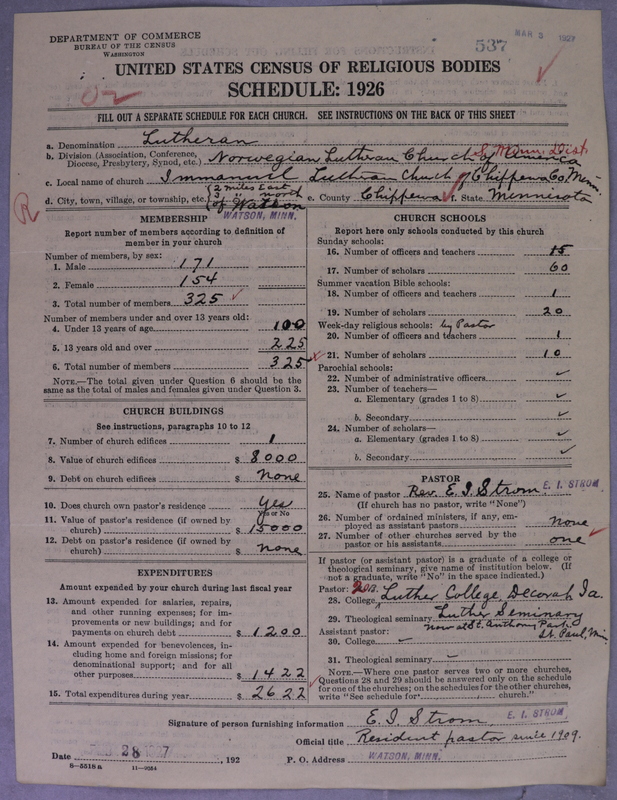 DEPARTMENT OF COMMERCE
BUREAU OF THE CENSUS
WASHINGTON
537
MAR 3 1927
UNITED STATES CENSUS OF RELIGIOUS BODIES
SCHEDULE: 1926
FILL OUT A SEPARATE SCHEDULE FOR EACH CHURCH. SEE INSTRUCTIONS ON THE BACK OF THIS SHEET
a. Denomination Lutheran
b. Division (Association, Conference, Diocese, Presbytery, Synod, etc.) Norwegian Lutheran Church of America S. Minn. Dist.
c. Local name of church Immanuel Lutheran Church of Chippewa Co. Minn.
d. City, town, village, or township, etc. (2 miles East 3 " north of Watson
WATSON, MINN.
e. County Chippewa f. State Minnisota
R
MEMBERSHIP
Report number of members according to definition of
member in your church
Number of members, by sex:
1. Male 171
2. Female 154
3. Total number of members 325
Number of members under and over 13 years old:
4. Under 13 years of age 100
5. 13 years old and over 225
6. Total number of members 325
NOTE.—The total given under Question 6 should be
the same as the total of males and females given under Question 3.
CHURCH BUILDINGS
See instructions, paragraphs 10 to 12
7. Number of church edifices 1
8. Value of church edifices $ 8000
9. Debt on church edifices $ None
10. Does church own pastor's residence Yes
Yes or No
11. Value of pastor's residence (if owned by
church) $ 15000
12. Debt on pastor's residence (if owned by
church) $ None
EXPENDITURES
Amount expended by church during last fiscal year
13. Amount expended for salaries, repairs,
and other running expenses; for im-
provements or new buildings; and for
payments on church debt $ 1200
14. Amount expended for benevolences, in-
cluding home and foreign missions; for
denominational support; and for all
other purposes $ 1422
15. Total expenditures during year $ 2622
CHURCH SCHOOLS
Report here only schools conducted by this church
Sunday schools:
16. Number of officers and teachers 15
17. Number of scholars 60
Summer vacation Bible schools:
18. Number of officers and teachers 1
19. Number of scholars 20
Week-day religious schools: by Pastor
20. Number of officers and teachers 1
21. Number of scholars 10
Parochial schools:
22. Number of administrative officers
23. Number of teachers—
a. Elementary (grades 1 to 8)
b. Secondary
24. Number of scholars—
a. Elementary (grades 1 to 8)
b. Secondary
PASTOR
25. Name of pastor Rev. E. I. Strom E. I. STROM
(If church has no pastor, write "None")
26. Number of ordained ministers, if any, em-
ployed as assistant pastors None
27. Number of other churches served by the
pastor or his assistants one
If pastor (or assistant pastor) is a graduate of a college or
theological seminary, give name of institution below. (If
not a graduate, write "No" in the space indicated.)
Pastor:
28. College Luther College Decorah Ia.
29. Theological seminary Luther Seminary
now at St. Anthony Park
St. Paul, Min
Assistant pastor:
30. College
31. Theological seminary
NOTE.—Where one pastor serves two or more churches,
Questions 28 and 29 should be answered only on the schedule
for one of the churches; on the schedules for the other churches,
write "See schedule for church."
Signature of person furnishing information E. I. Strom E. I. STROM
Official title Resident pastor since 1909.
Date FEB 28 1927, 192
P. O. Address WATSON, MINN.
8—5518 a 11—9054